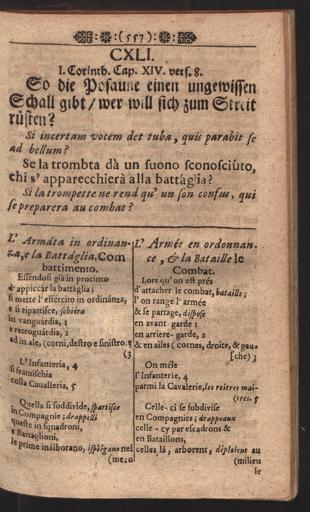 (557)
CXLI.
I. Corinth. Cap. XIV. vers. 8.
So die Posaune einen ungewissen
Schall gibt / wer will sich zum Streit
rüsten?
Si incertam vocem det tuba, quis parabit se
ad bellum?
Se la trombta dà un suono sconosciúto,
chi s' apparecchierà alla battáglia?
Si la trompette ne rend qu' un son confus, qui
se preparera au combat?
L' Armáta in ordinan-
za, e la Battáglia, Com
battimento.
Esséndosi già in procinto
d' appiccár la battáglia;
si mette l' essército in ordinánza,
e si ripartisce, schiéra
in vanguárdia, 1
e retroguárdia, 2
ed in ale, (corni, destro e sinistro. 3
(3
L' Infanteria, 4
si framischia
colla Cavalleria, 5
Quella si soddivide, spartisce
in Compagnie; drappelli
queste in squadroni,
e Battaglioni,
le prime inálborano, ispiégano nel
(mezo
L' Armée en ordonnan-
ce, & la Bataille le
Combat.
Lors qu' on est prés
d' attacher le combat, bataille;
l' on range l' armée
& se partage, dispose
en avant-garde 1
en arriere-garde, 2
& en ailes (cornes, droite, & gau-
[che) 3
On mêle
l' Infanterie, 4
parmi la Cavalerie, les reitres mai-
(tres. 5
Celle-ci se subdivise
en Compagnies; drappeaux
celle-cy par escadrons &
en Bataillons,
celles là, arborent, déploient au
(milieu
le